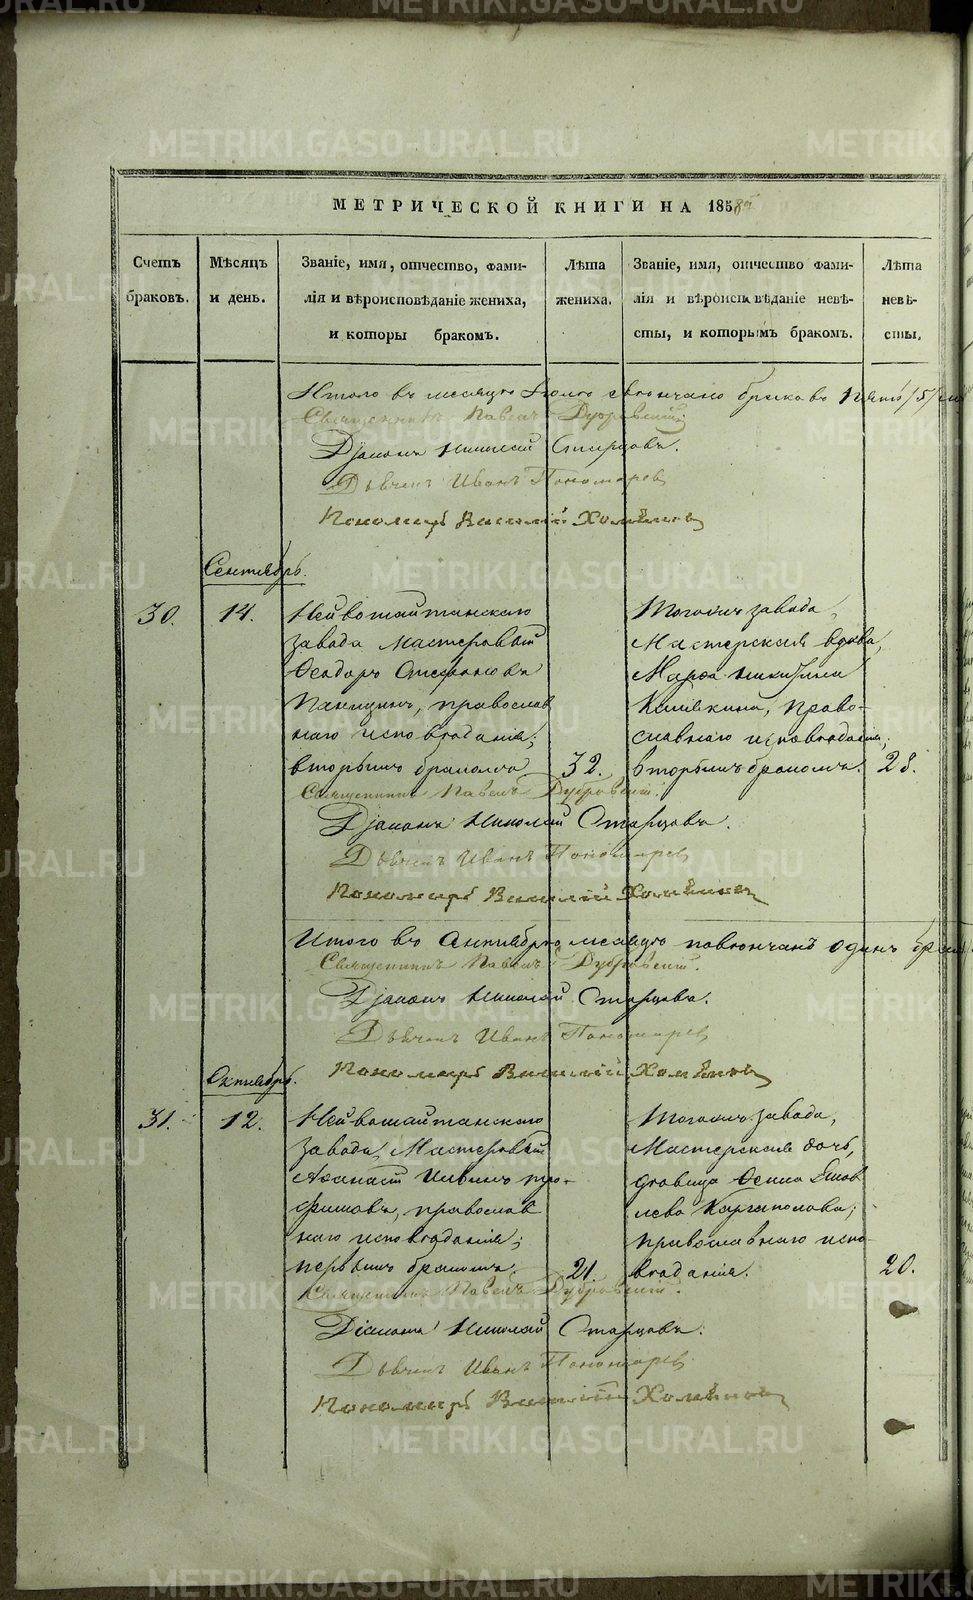 МЕТРИЧЕСКОЙ КНИГИ НА 1858
Счетъ браковъ.
Мѣсяцъ и день.
Званіе, имя, отчество, фамилія и вѣроисповѣданіе жениха, и которы бракомъ.
Лѣта жениха.
Званіе, имя, отчество фамилія и вѣроисповѣданіе невѣсты, и которымъ бракомъ.
Лѣта невѣсты.
Итого въ месяцѣ Іюлѣ свенчано браковъ пять /5/
Священникъ Павелъ Дубровскій
Діаконъ Николай Старцовъ.
Дьячекъ Иванъ Пономарев
Пономарь Василій
Сентябрь.
30.
14.
Нейвошайтанскаго
завода Мастеровый
Ѳеодоръ Стефановъ
православ
наго исповѣданія;
вторымъ бракомъ
32.
Тогожъ завода,
Мастерская вдова,
Марѳа Никитина
право-
славнаго исповѣданія;
вторымъ бракомъ.
28.
Священникъ Павелъ Дубровскій.
Діаконъ Николай Старцовъ.
Дьячекъ Иванъ Пономарев
Пономарь Василій
Итого въ Сентябрѣ месяцѣ повѣнчанъ одинъ
Священникъ Павелъ Дубровскій.
Діаконъ Николай Старцовъ.
Дьячекъ Иванъ Пономарев
Пономарь Василій
Октябрь.
31.
12.
Нейвошайтанскаго
завода, Мастеровый
Аѳанасій Ивинъ Тро-
фимовъ, православ
наго исповѣданія;
первымъ бракомъ.
21.
Тогожъ завода,
Мастерская дочь,
дѣвица Ѳекла Яков
лева Каргаполова;
православнаго испо-
вѣданія.
20.
Священникъ Павелъ Дубровскій.
Діаконъ Николай Старцовъ.
Дьячекъ Иванъ Пономарев
Пономарь Василій
METRIKI.GASO-URAL.RU